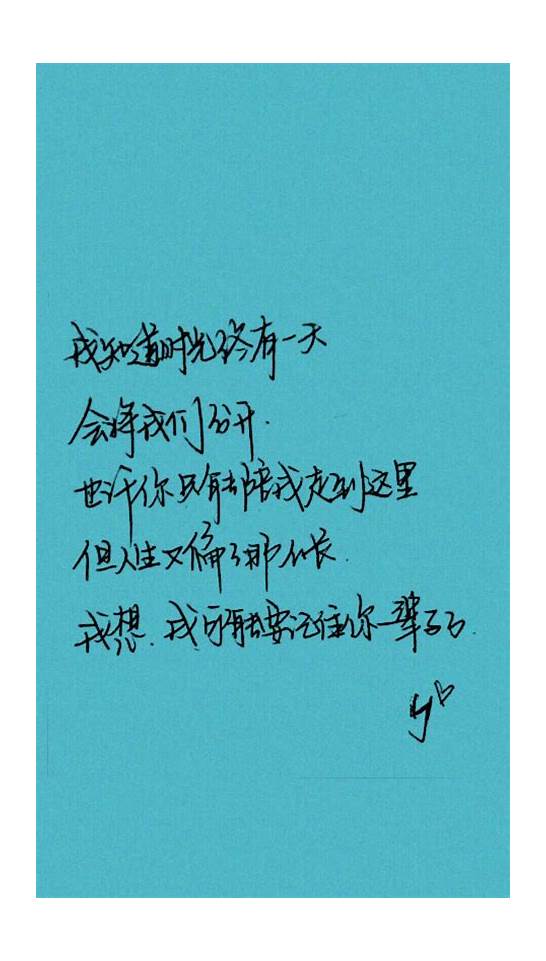 我知道时光终有一天
会将我们分开.
也许你只能陪我走到这里
但人生又偏了那么长.
我想.我可能要记住你一辈子了.
y♡